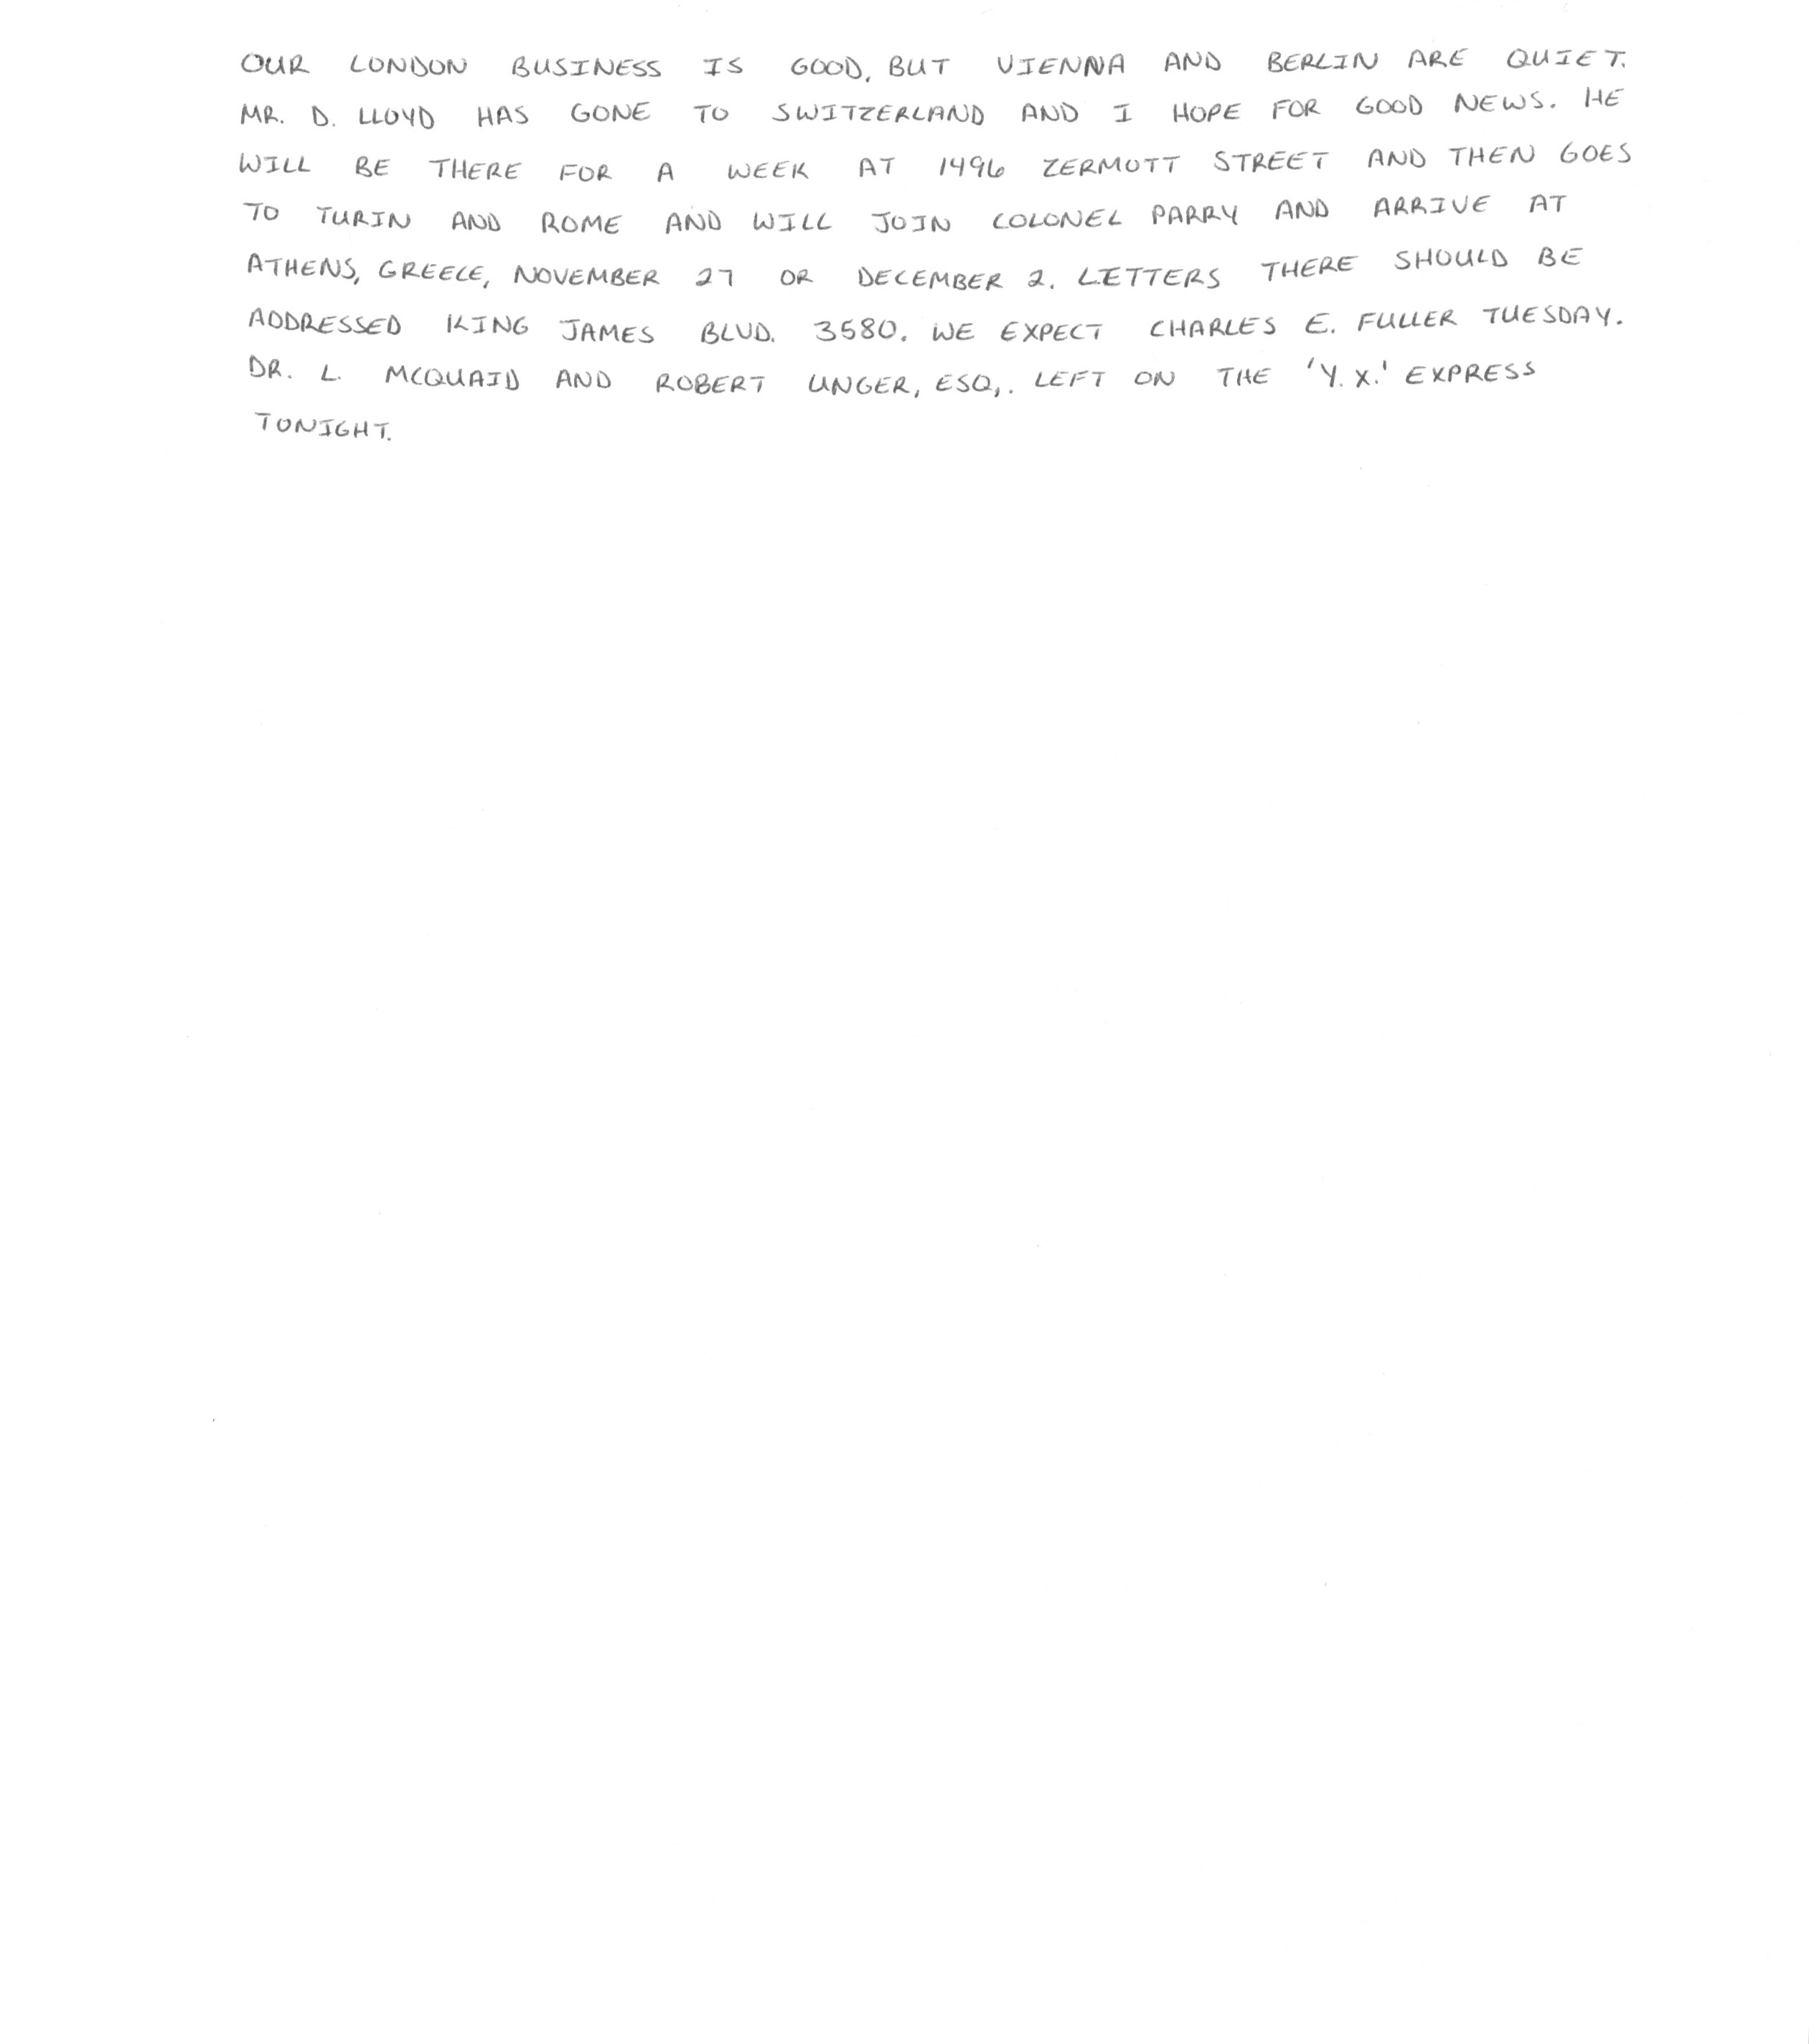 OUR LONDON BUSINESS IS GOOD, BUT VIENNA AND BERLIN ARE QUIET.
MR. D. LLOYD HAS GONE TO SWITZERLAND AND I HOPE FOR GOOD NEWS. HE
WILL BE THERE FOR A WEEK AT 1496 ZERMOTT STREET AND THEN GOES
TO TURIN AND ROME AND WILL JOIN COLONEL PARRY AND ARRIVE AT
ATHENS, GREECE, NOVEMBER 27 OR DECEMBER 2. LETTERS THERE SHOULD BE
ADDRESSED KING JAMES BLVD. 3580. WE EXPECT CHARLES E. FULLER TUESDAY.
DR. L. MCQUAID AND ROBERT UNGER, ESQ,. LEFT ON THE 'Y. X.' EXPRESS
TONIGHT.